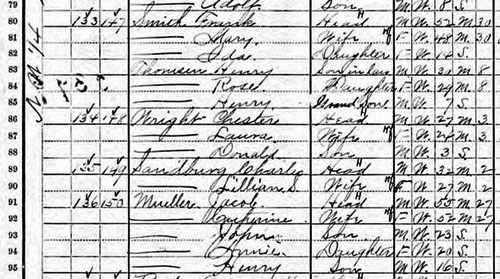 79 Adolf Son M W 8 S
80 133 147 Smith Frank Head M W 52 M 30
81 Mary Wife F W 48 M 30
82 Ida Daughter F W 14 S
83 Thomsen Henry Son in law M W 31 M 8
84 Rose Daughter F W 29 M 8
85 Henry Grand Son M W 7 S
86 134 148 Wright Chester Head M W 27 M 3
87 Laura Wife F W 24 M 3
88 Donald Son M W 3 S
89 135 149 Sandburg Charles Head M W 32 M 2
90 Lillian S. Wife F W 27 M 2
91 136 150 Mueller Jacob Head M W 55 M 27
92 Katherine Wife F W 52 M 27
93 John Son M W 23 S
94 Annie Daughter F W 20 S
95 Henry Son M W 16 S